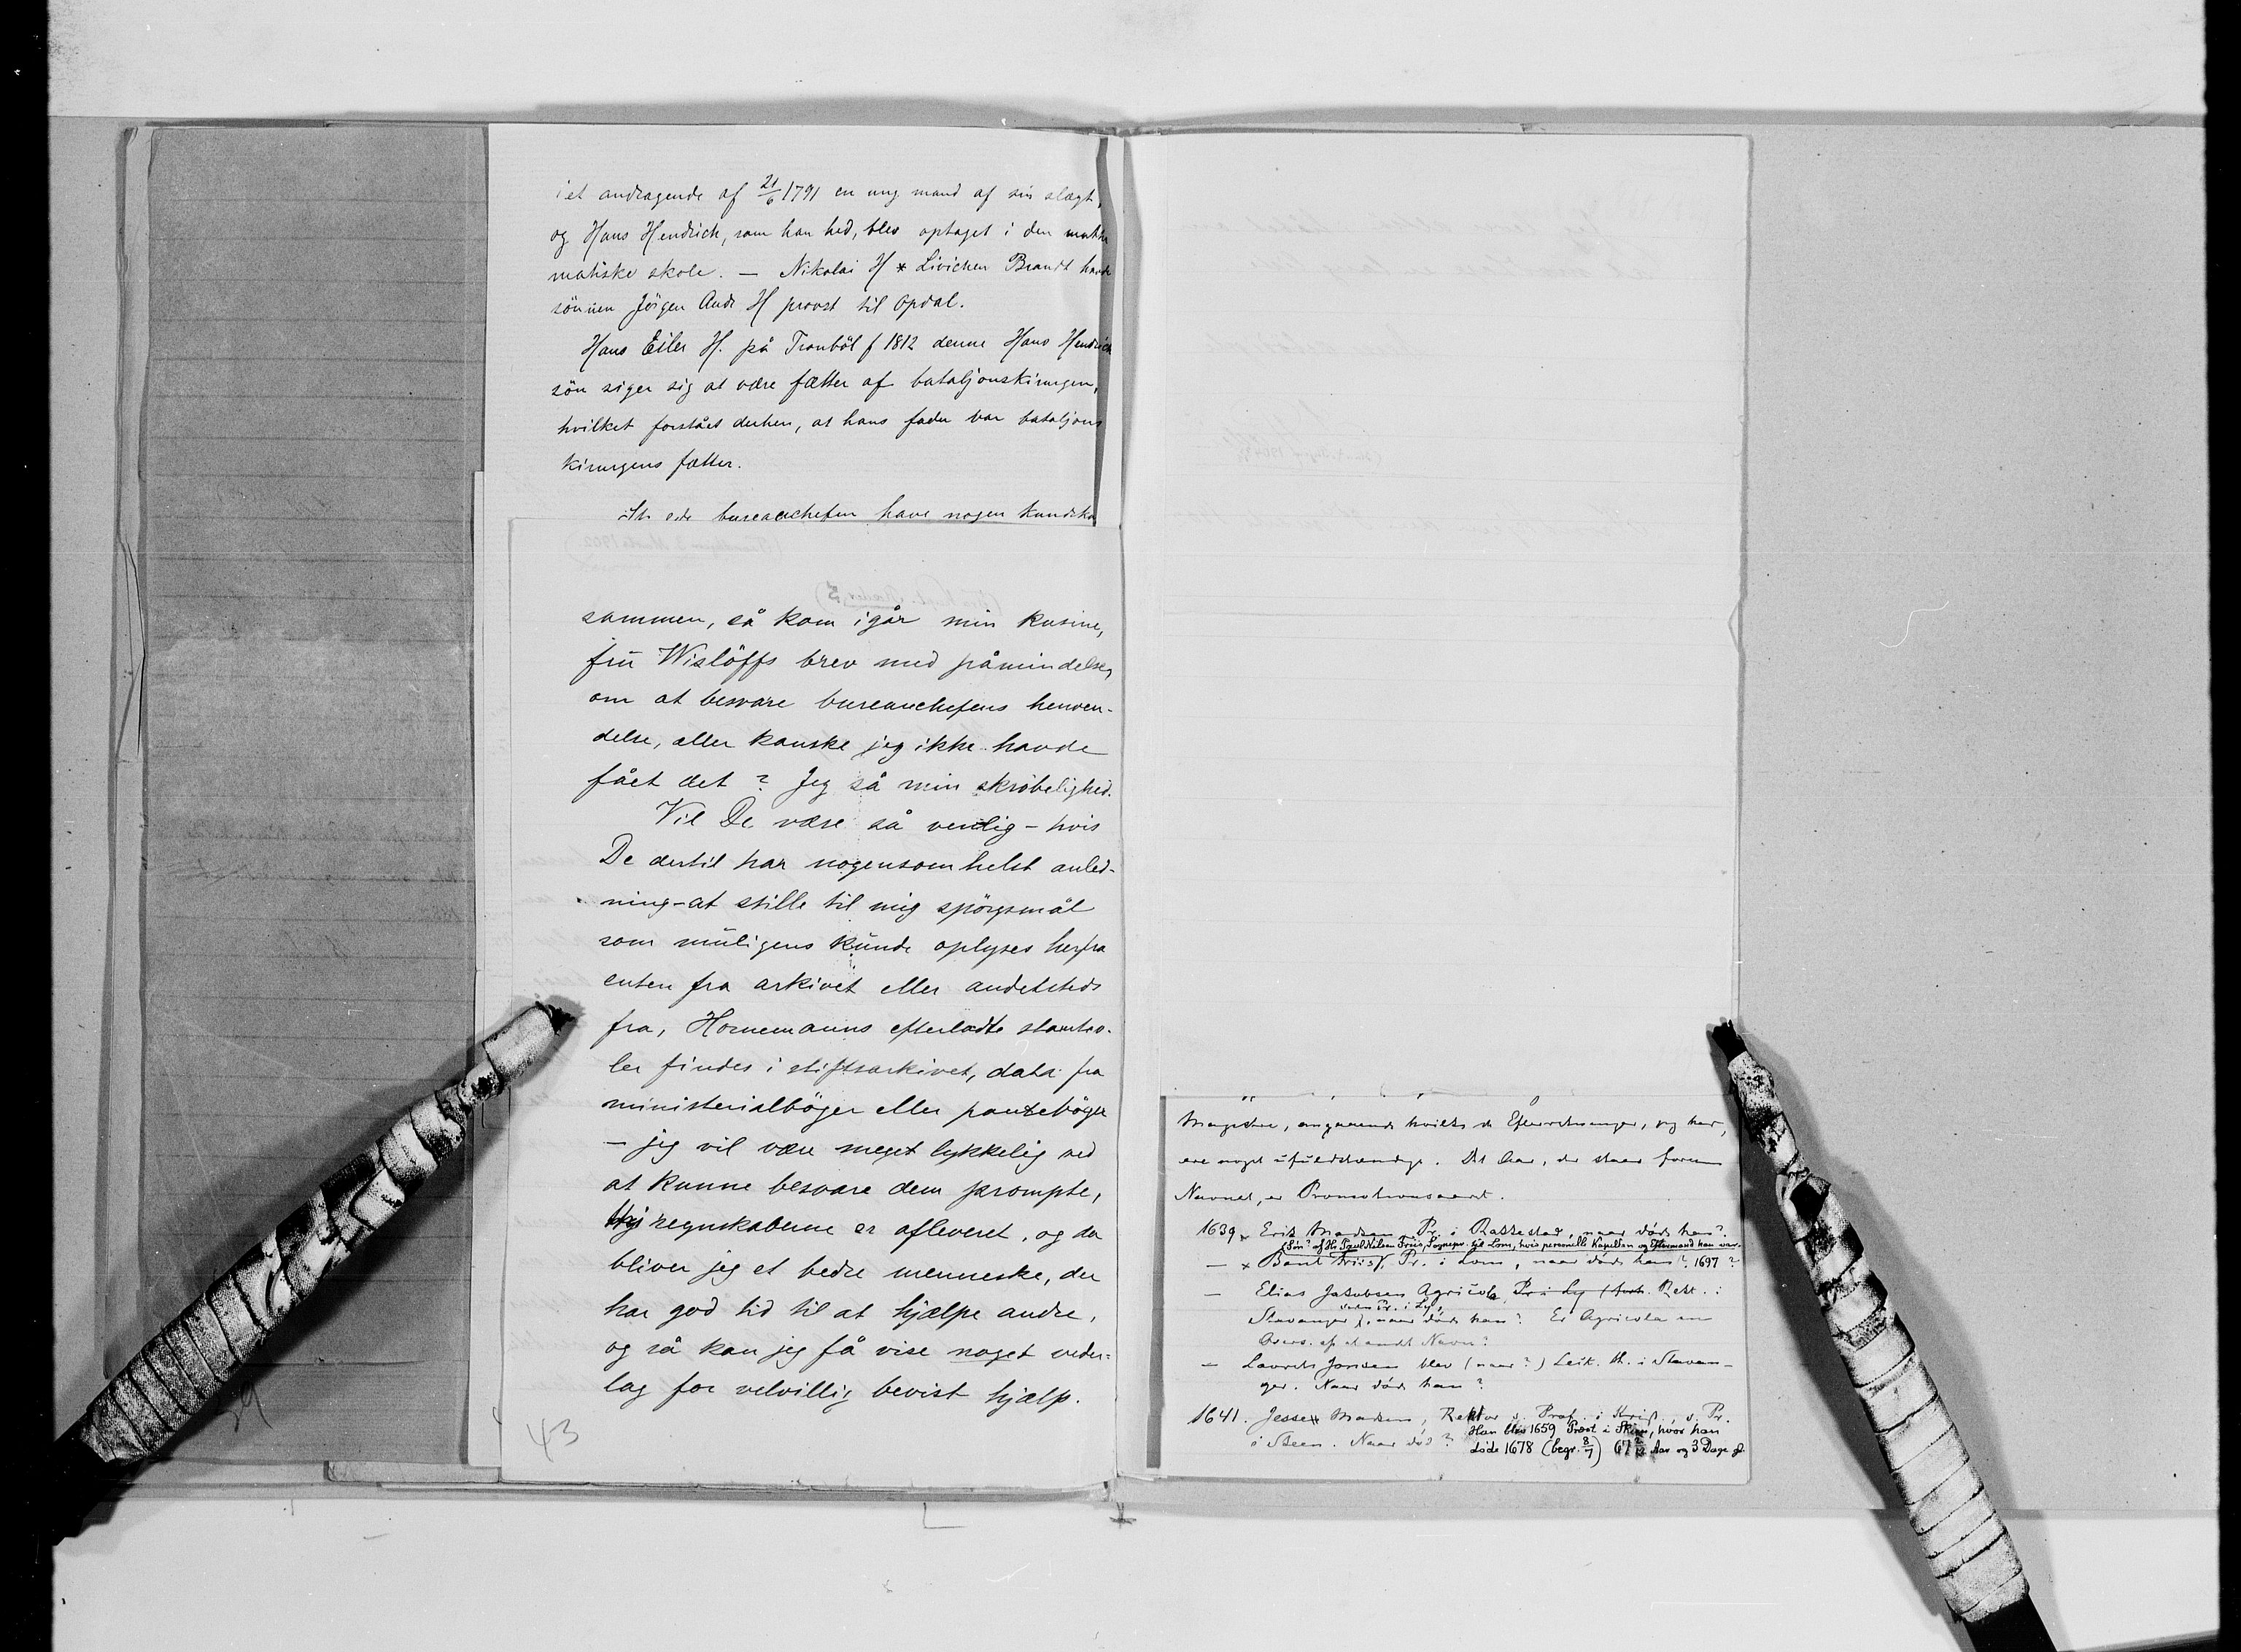 i et andragende af 21/6 1791 en ung mand af sin slægt,
og Hans Hendrich, som han hed, blev optaget i den mathe
matiske skole. — Nikolai H * Livichen Brandt havde
sönnen Jörgen Andr H provst til Opdal.
Hans Eiler H. på Tronböl f 1812 denne Hans Hendrich
sön siger sig at være fætter af bataljonskirurgen,
hvilket forstået derhen, at hans fader var bataljons
kirurgens fætter.
bureauchefen have nogen kundska
sammen, så kom igår min kusine,
frü Wislöffs brev med påmindelse,
om at besvare bureauchefens henven-
delse, eller kanske jeg ikke havde
fået det? Jeg så min skröbelighed.
Vil De være så venlig - hvis
De dertil har nogensomhelst anled-
ning - at stille til mig spörgsmål
som müligens künde oplyses herfra
enten fra arkivet eller andetsteds
fra, Hornemanns efterladte stamtav-
ler findes i stiftsarkivet, data fra
ministerialböger eller panteböger
— jeg vil være meget lykkelig ved
at kunne besvare dem prompte,
thi regnskaberne er afleveret, og da
bliver jeg et bedre menneske, der
har god tid til at hjælpe andre,
og så kan jeg få vise noget veder-
lag for velvillig bevist hjælp.
39
43
Magistre, angaaende hvilke de Efterretninger, jeg har,
ere noget üfüldstændige. Det Aar, der staar foran
Navnet, er Promotionsaaret.
1639 x Erik Madsen Pr. i Rakkestad, naar døde han?
(Søn? af Hr. Truls Nilsen Friis, Sognepr. til Lom, hvis personelle Kapellan og Eftermand han var.
— x Bent Friis, Pr. i Lom, naar døde han? 1697?
— Elias Jakobsen Agricola, Pr. i Ly (forh. Rekt. i
siden Pr. i Ly,
Stavanger), naar døde han? Er Agricola en
Overs. af et andet Navn?
— Laurits Jonssen blev (naar?) Lekt. th. i Stavan-
ger. Naar døde han?
1641. Jesse Madsen, Rektor og Prof. i Krist., s. Pr.
i Skeen. Naar død? Han blev 1659 Præst i Skien, hvor han
døde 1678 (begr. 8/7) 67 Aar og 3 Dage gl.